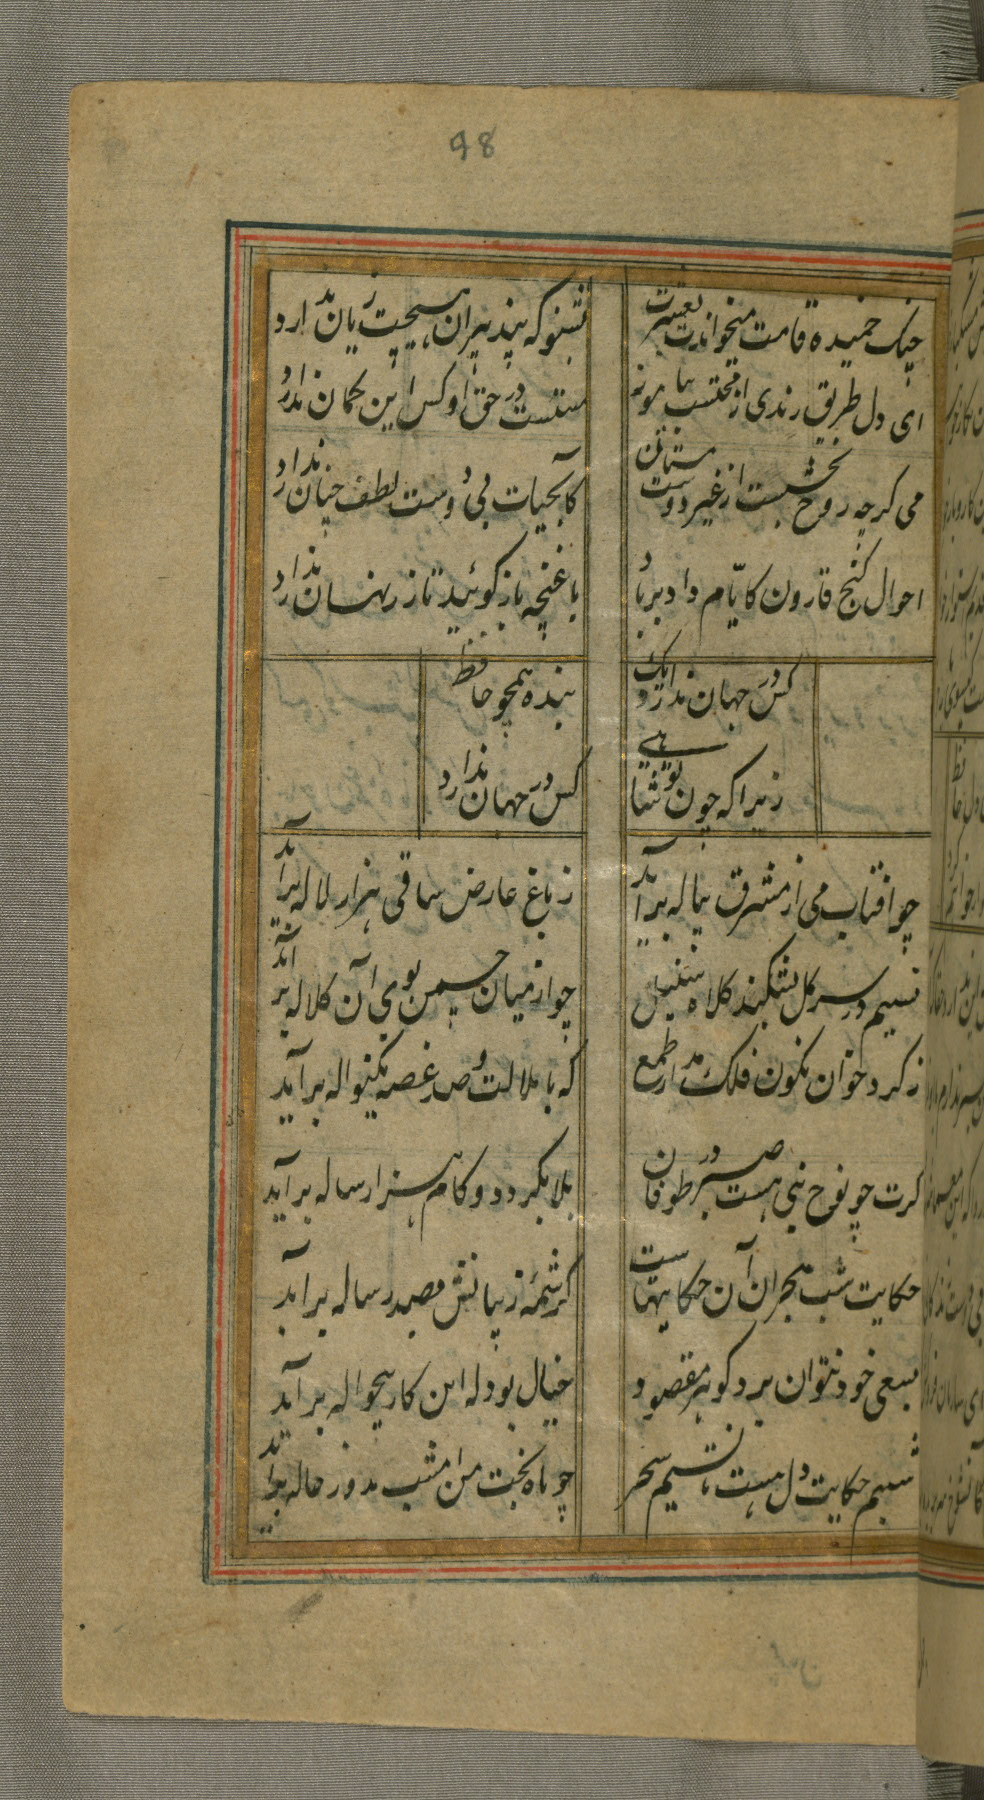 98
چنک خمیده قامت میخواندت بعشرت
بشنو که پند پیران هیچت زیان ندارد
ای دل طریق رندی از محتسب بیاموز
مستست و در حق او کس این کمان ندارد
می کرچه روح بخشست از غیر دوست مستان
کآبحیات بی دوست لطف چنان ندارد
احوال کنج قارون کایّام داد بر باد
با غنچه باز کوئید تا زر نهان ندارد
کس در جهان ندارد یک
بنده همچو حافظ
زیرا که چون تو شاهی
کس در جهان ندارد
چو افتاب می از مشرق پیاله برآید
ز باغ عارض ساقی هزار لاله برآید
نسیم در سر کل بشکند کلاه سنبل
چو از میان چمن بوی آن کلاله برآید
ز کرد خوان نکون فلک مدار طمع
که با ملالت و صد غصه یکنواله برآید
کرت چو نوح نبی هست صبر در طوفان
بلا بکردد و کام هزار ساله برآید
حکایت شب هجران آن حکایتهاست
که شمّهٔ ز بیانش بصد رساله برآید
بسعی خود نتوان برد کوهر مقصود
خیال بود که این کار بیحواله برآید
شبیم حکایت دل هست با نسیم سحر
چو ماه بخت من امشب بدور هاله برآید